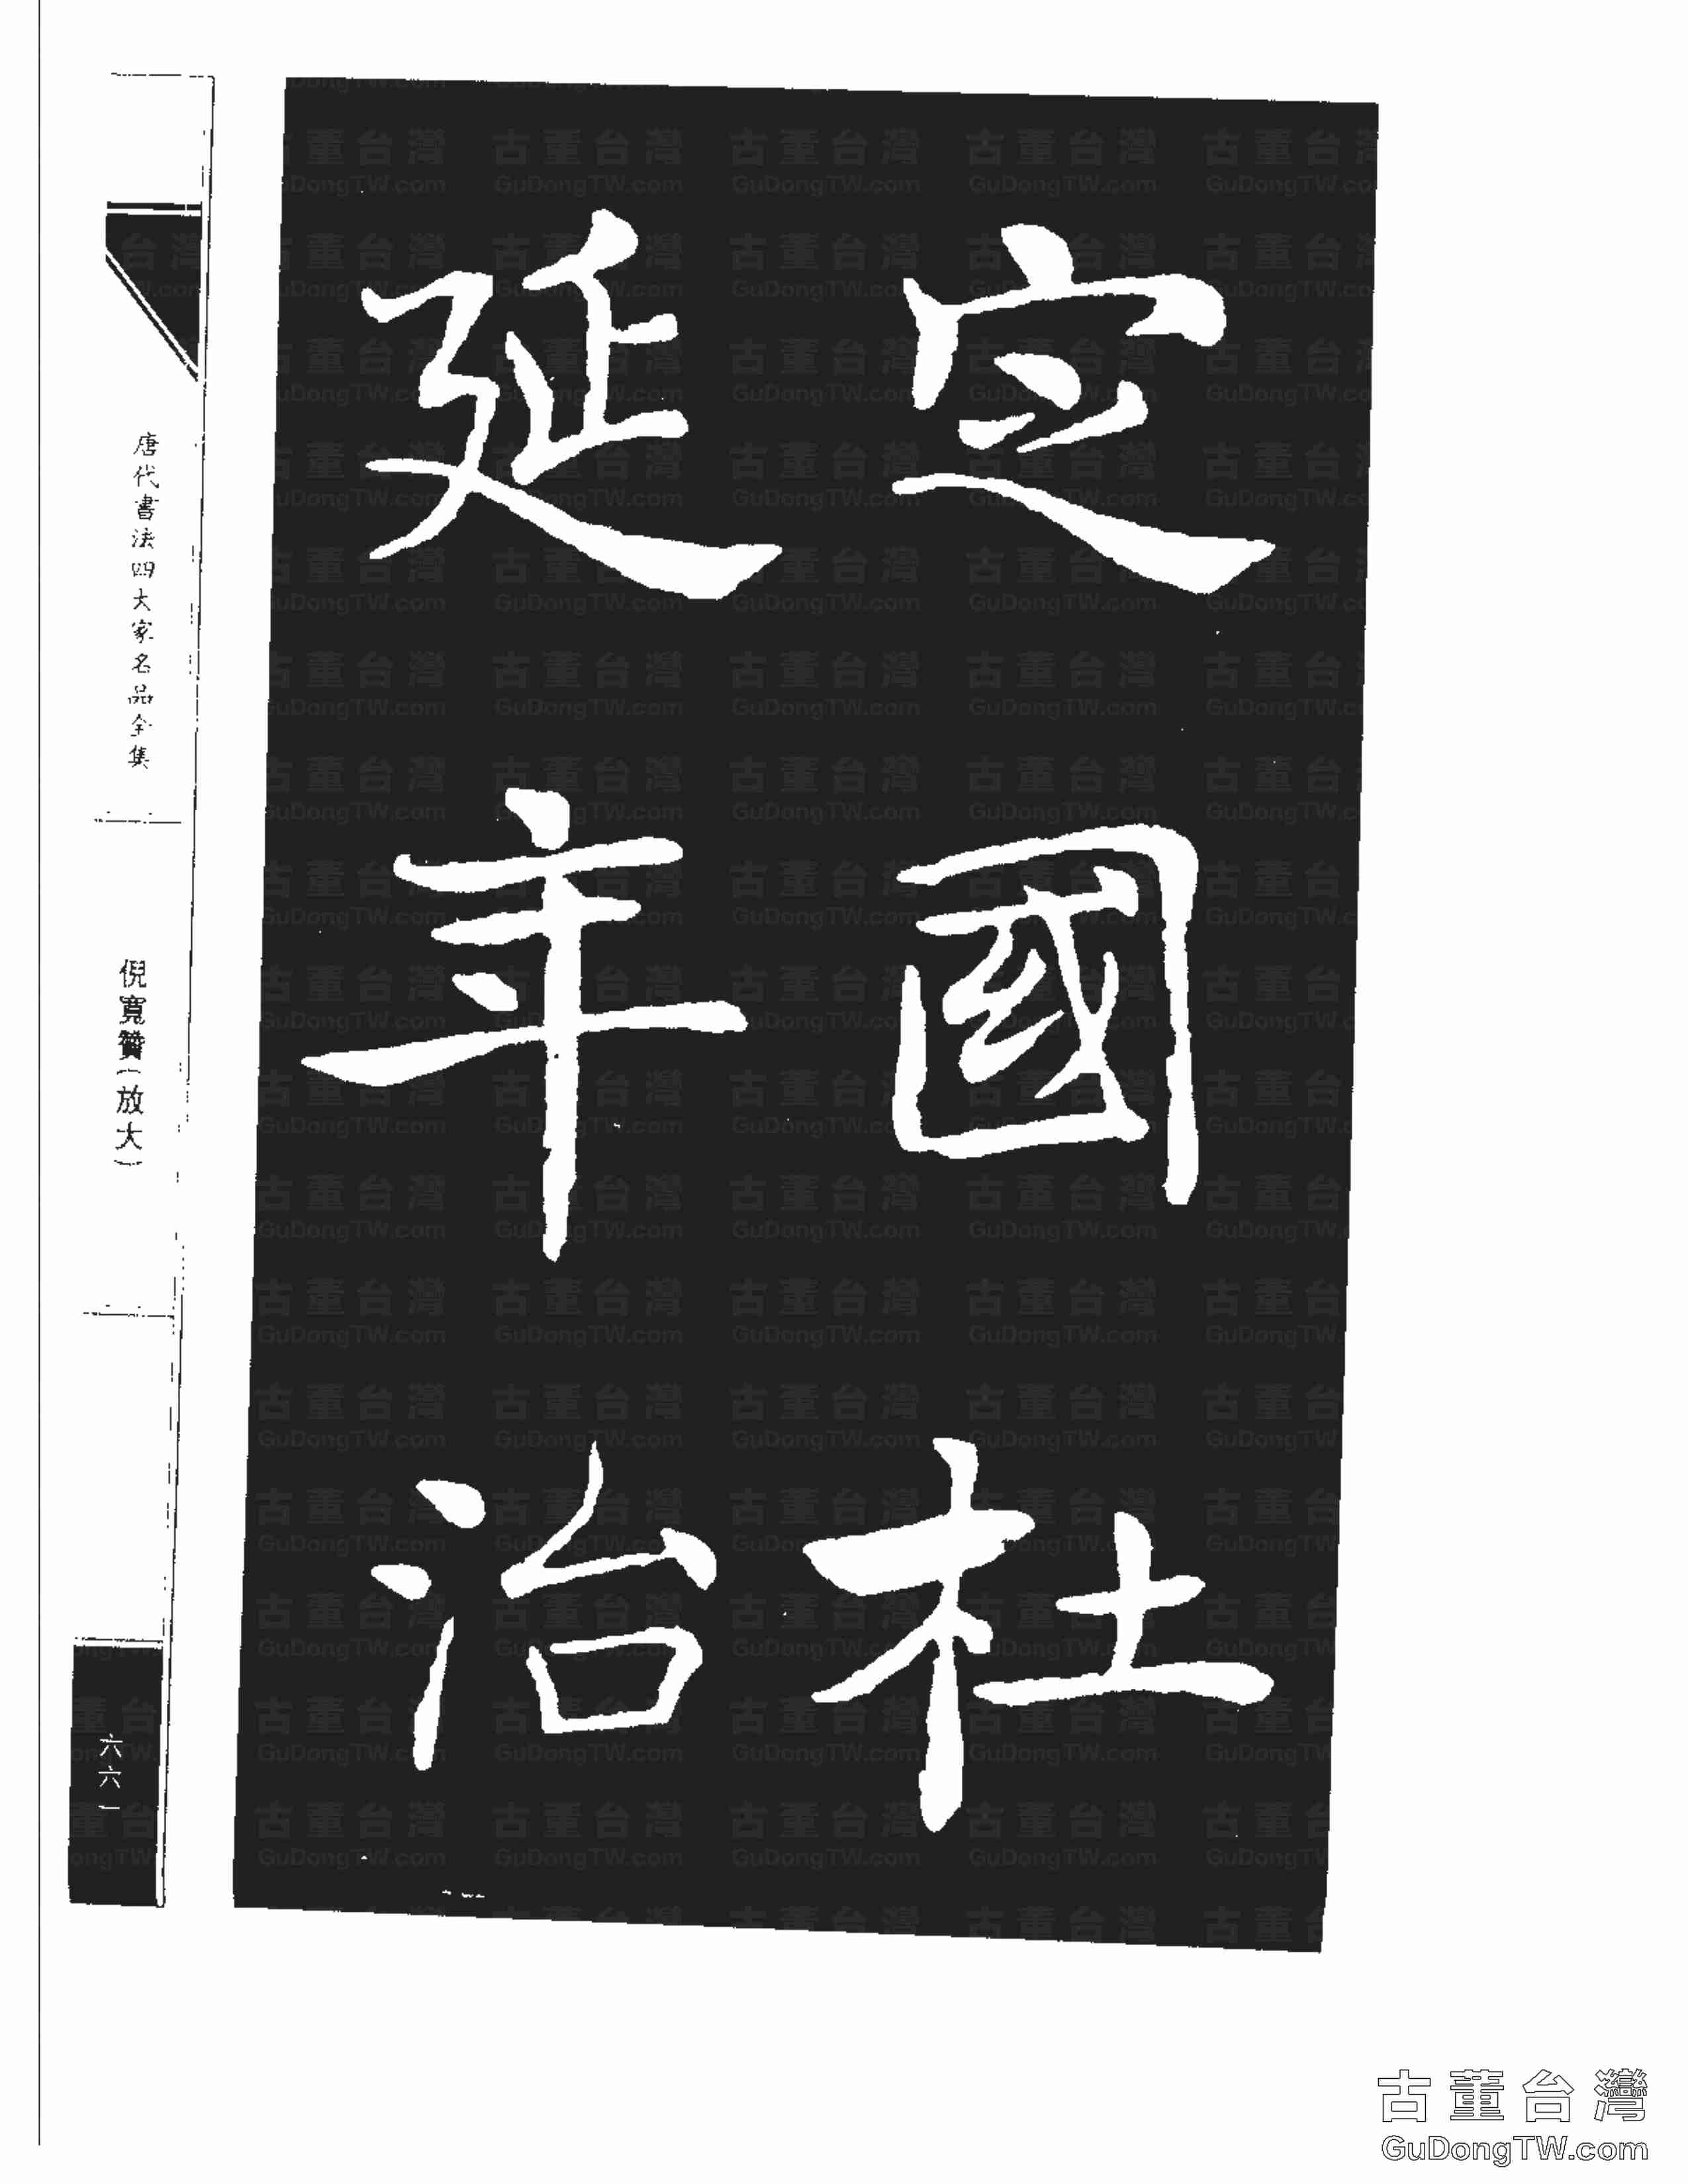 定國杜
延年治
唐代書法四大家名品全集
倪寬贊(放大)
六六一
古董台灣
GuDongTW.com